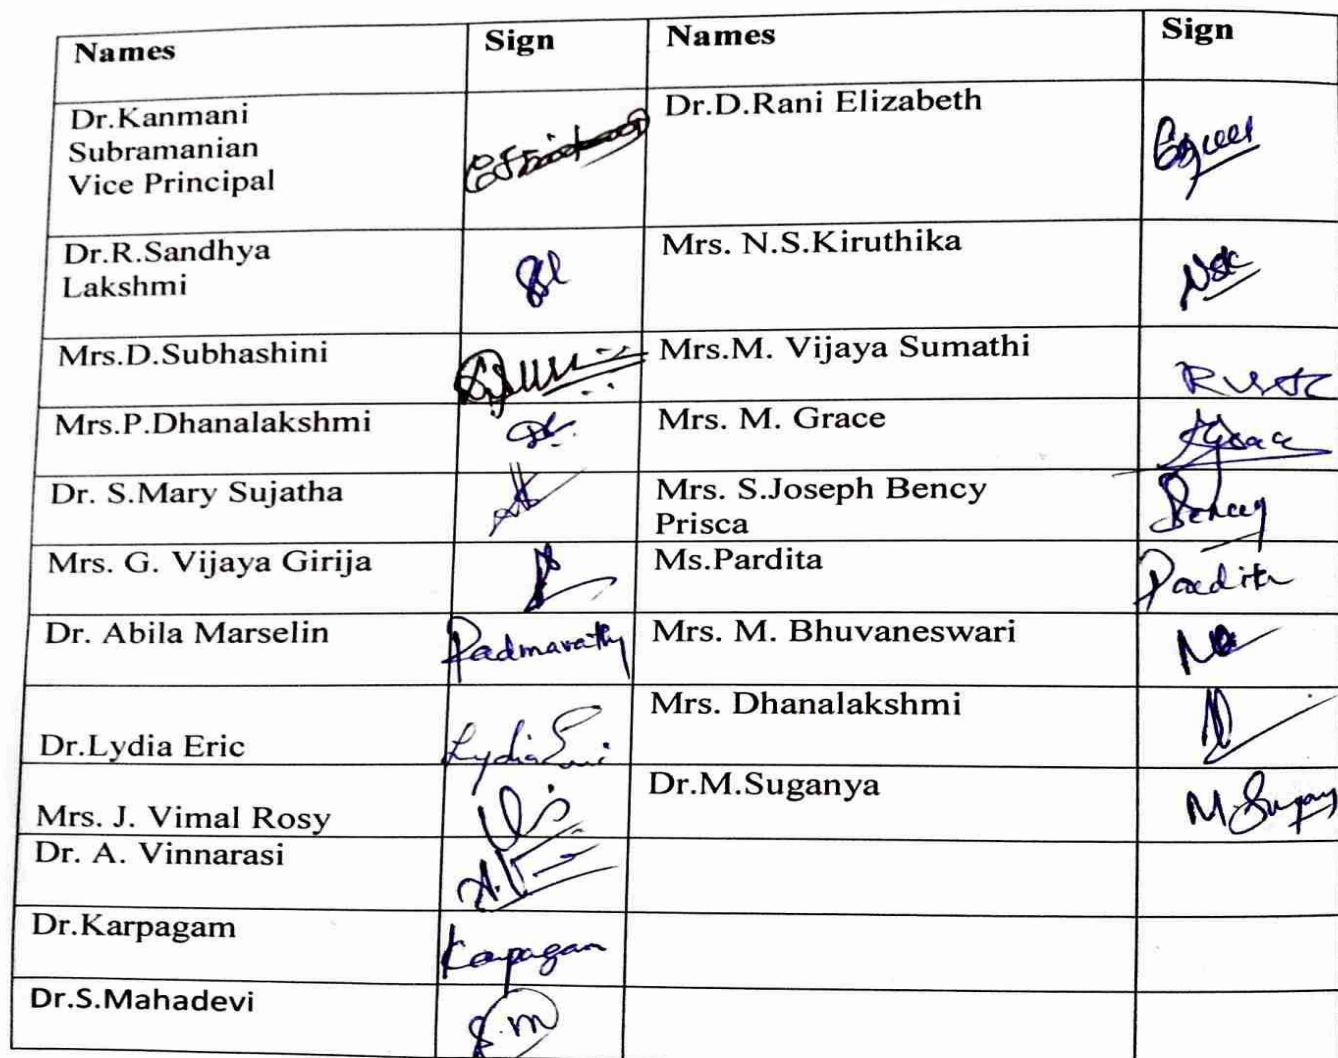 Names Sign Names Sign
Dr.Kanmani
Subramanian
Vice Principal
Dr.D.Rani Elizabeth
Dr.R.Sandhya
Lakshmi
Mrs. N.S.Kiruthika
Nsk
Mrs.D.Subhashini
Mrs.M. Vijaya Sumathi
Mrs.P.Dhanalakshmi
Mrs. M. Grace
Grace
Dr. S.Mary Sujatha
Mrs. S.Joseph Bency
Prisca
Bency
Mrs. G. Vijaya Girija
Ms.Pardita
Pardita
Dr. Abila Marselin
Padmavathy
Mrs. M. Bhuvaneswari
Mrs. Dhanalakshmi
Dr.Lydia Eric
Lydia Eric
Dr.M.Suganya
Mrs. J. Vimal Rosy
M.Sugany
Dr. A. Vinnarasi
Dr.Karpagam
Karpagam
Dr.S.Mahadevi
S.m